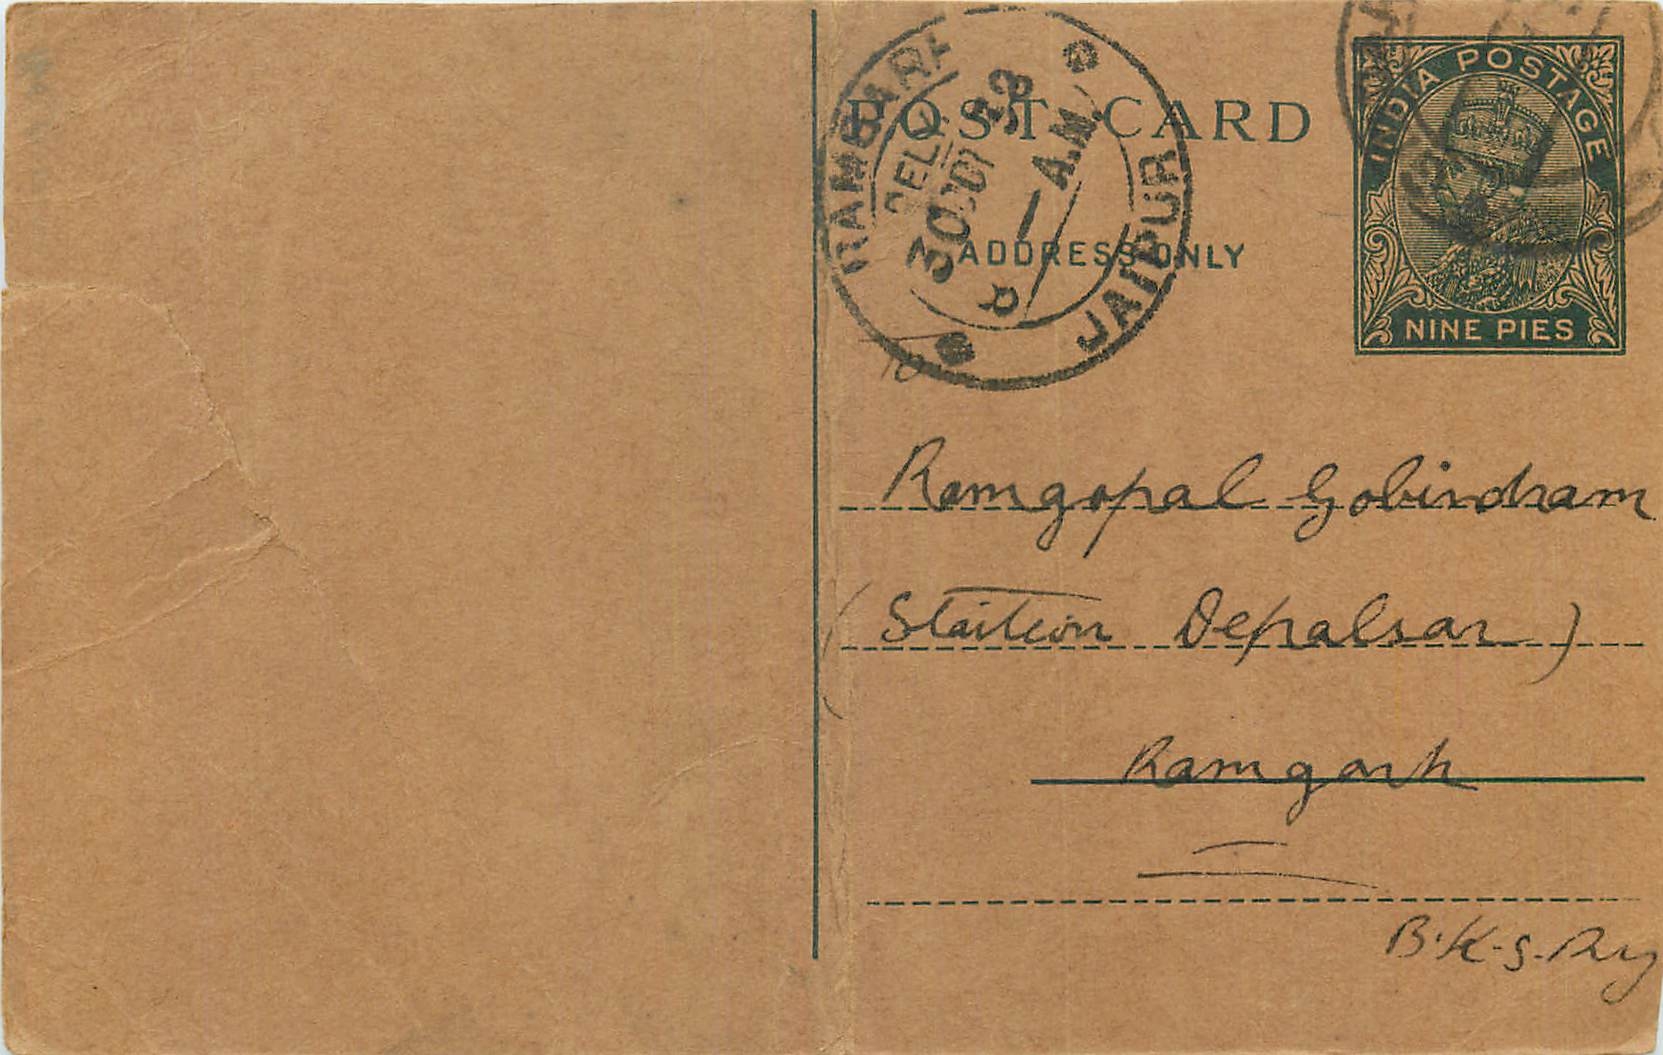 POST CARD
ADDRESS ONLY
INDIA POSTAGE
NINE PIES
RAMGARH
DELY
30 OCT 33
1 A.M.
JAIPUR
Ramgopal Gobindram
(Staition Depalsar)
Ramgarh
B.K-S. Ry